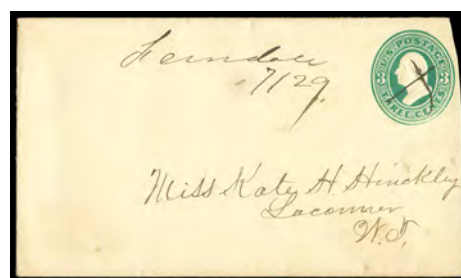 Ferndale
7/29
U.S. POSTAGE
3 3
THREE CENTS
Miss Kate H. Hinckley
Laconner
W.T.